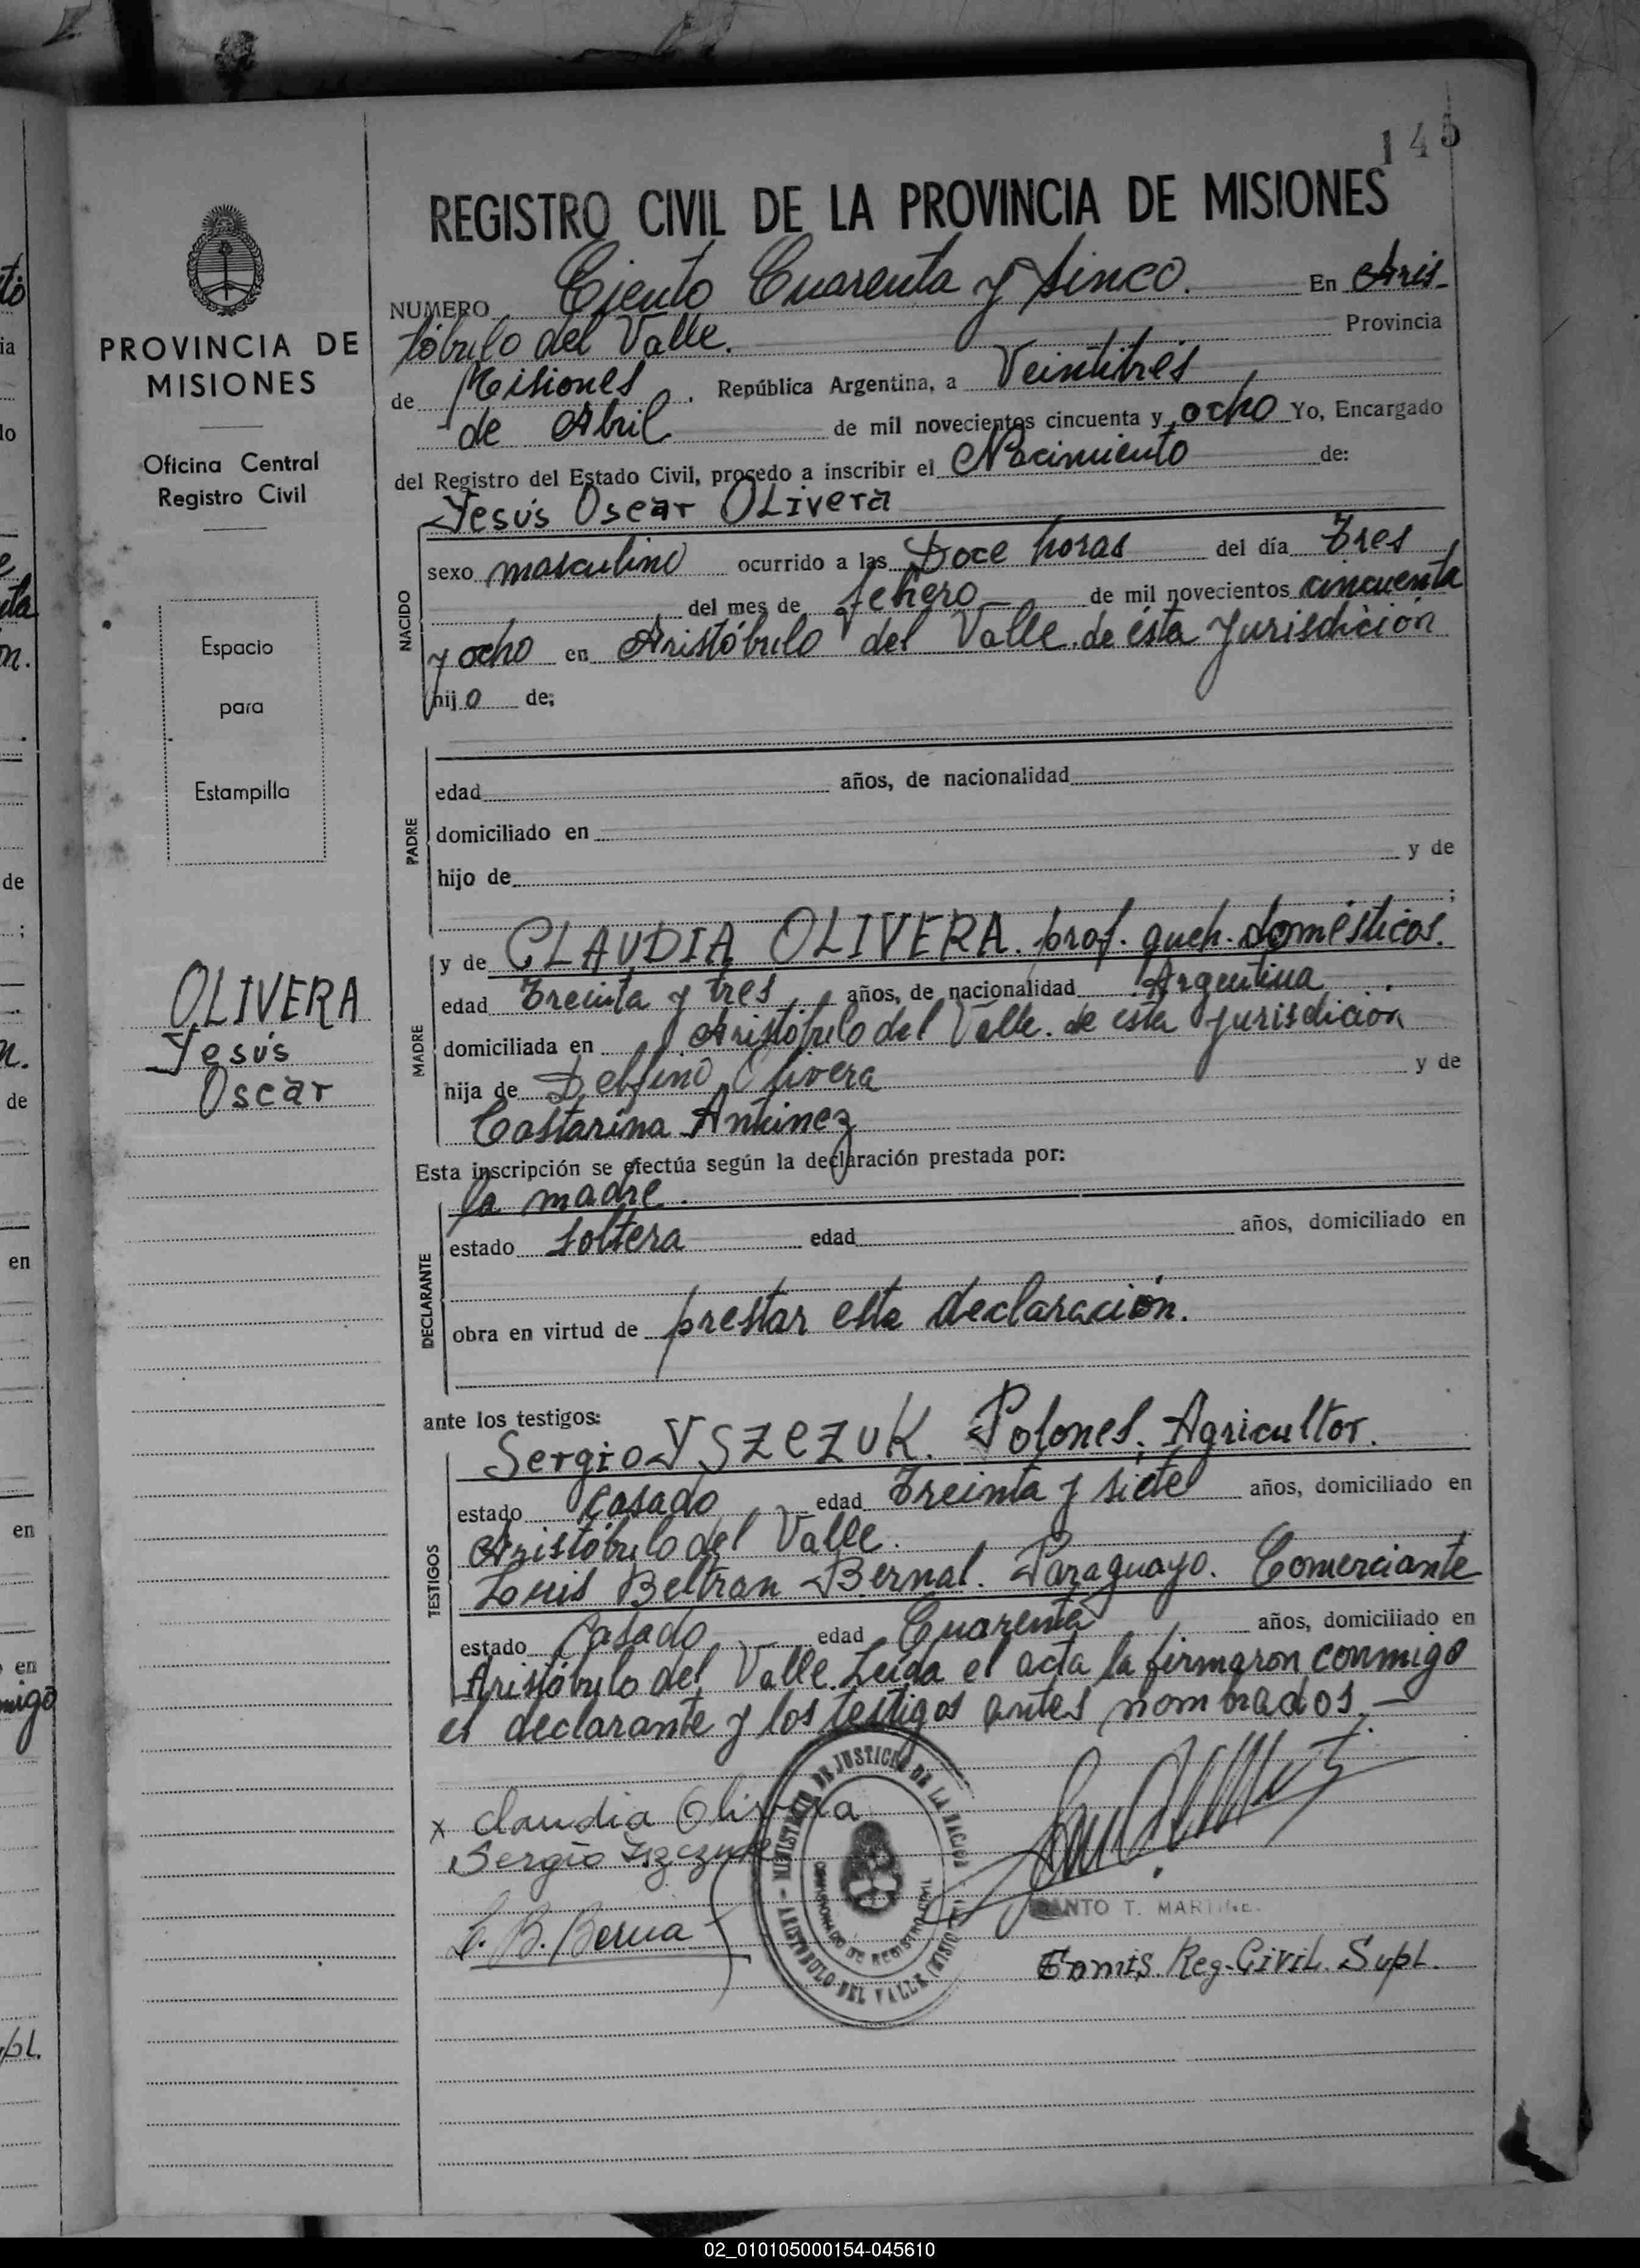 145
REGISTRO CIVIL DE LA PROVINCIA DE MISIONES
NUMERO Ciento Cuarenta y sinco. En Aris-
tóbulo del Valle. Provincia
de Misiones. República Argentina, a Veintitrés
de Abril de mil novecientos cincuenta y ocho Yo, Encargado
del Registro del Estado Civil, procedo a inscribir el Nacimiento de:
Yesús Oscar OLivera
NACIDO
sexo masculino ocurrido a las Doce horas del día Tres
del mes de febrero de mil novecientos cincuenta
y ocho en Aristóbulo del Valle. de ésta Yurisdición
hijo de;
PADRE
edad años, de nacionalidad
domiciliado en
hijo de y de
;
MADRE
y de CLAUDIA OLIVERA. prof. queh. domésticos.
edad Treinta y tres años, de nacionalidad Argentina
domiciliada en Aristóbulo del Valle. de esta Yurisdición
hija de Delfino Olivera y de
Castarina Antinez
Esta inscripción se efectúa según la declaración prestada por:
la madre.
DECLARANTE
estado soltera edad años, domiciliado en
obra en virtud de prestar esta declaración.
ante los testigos:
TESTIGOS
Sergio YSZEZUK. Polones. Agricultor.
estado Casado edad Treinta y siete años, domiciliado en
Aristóbulo del Valle.
Luis Beltran Bernal. Paraguayo. Comerciante
estado Casado edad Cuarenta años, domiciliado en
Aristóbulo del Valle. Leída el acta la firmaron conmigo
el declarante y los testigos antes nombrados.—
x Claudia Olivera
Sergio
L. B. Bernal
MINISTERIO DE JUSTICIA DE LA NACION
ARISTOBULO DEL VALLE (MISIONES)
SANTO T. MARTINEZ
Enmis. Reg. Civil. Supl.
PROVINCIA DE
MISIONES
Oficina Central
Registro Civil
Espacio
para
Estampilla
OLIVERA
Yesús
Oscar
02_010105000154-045610